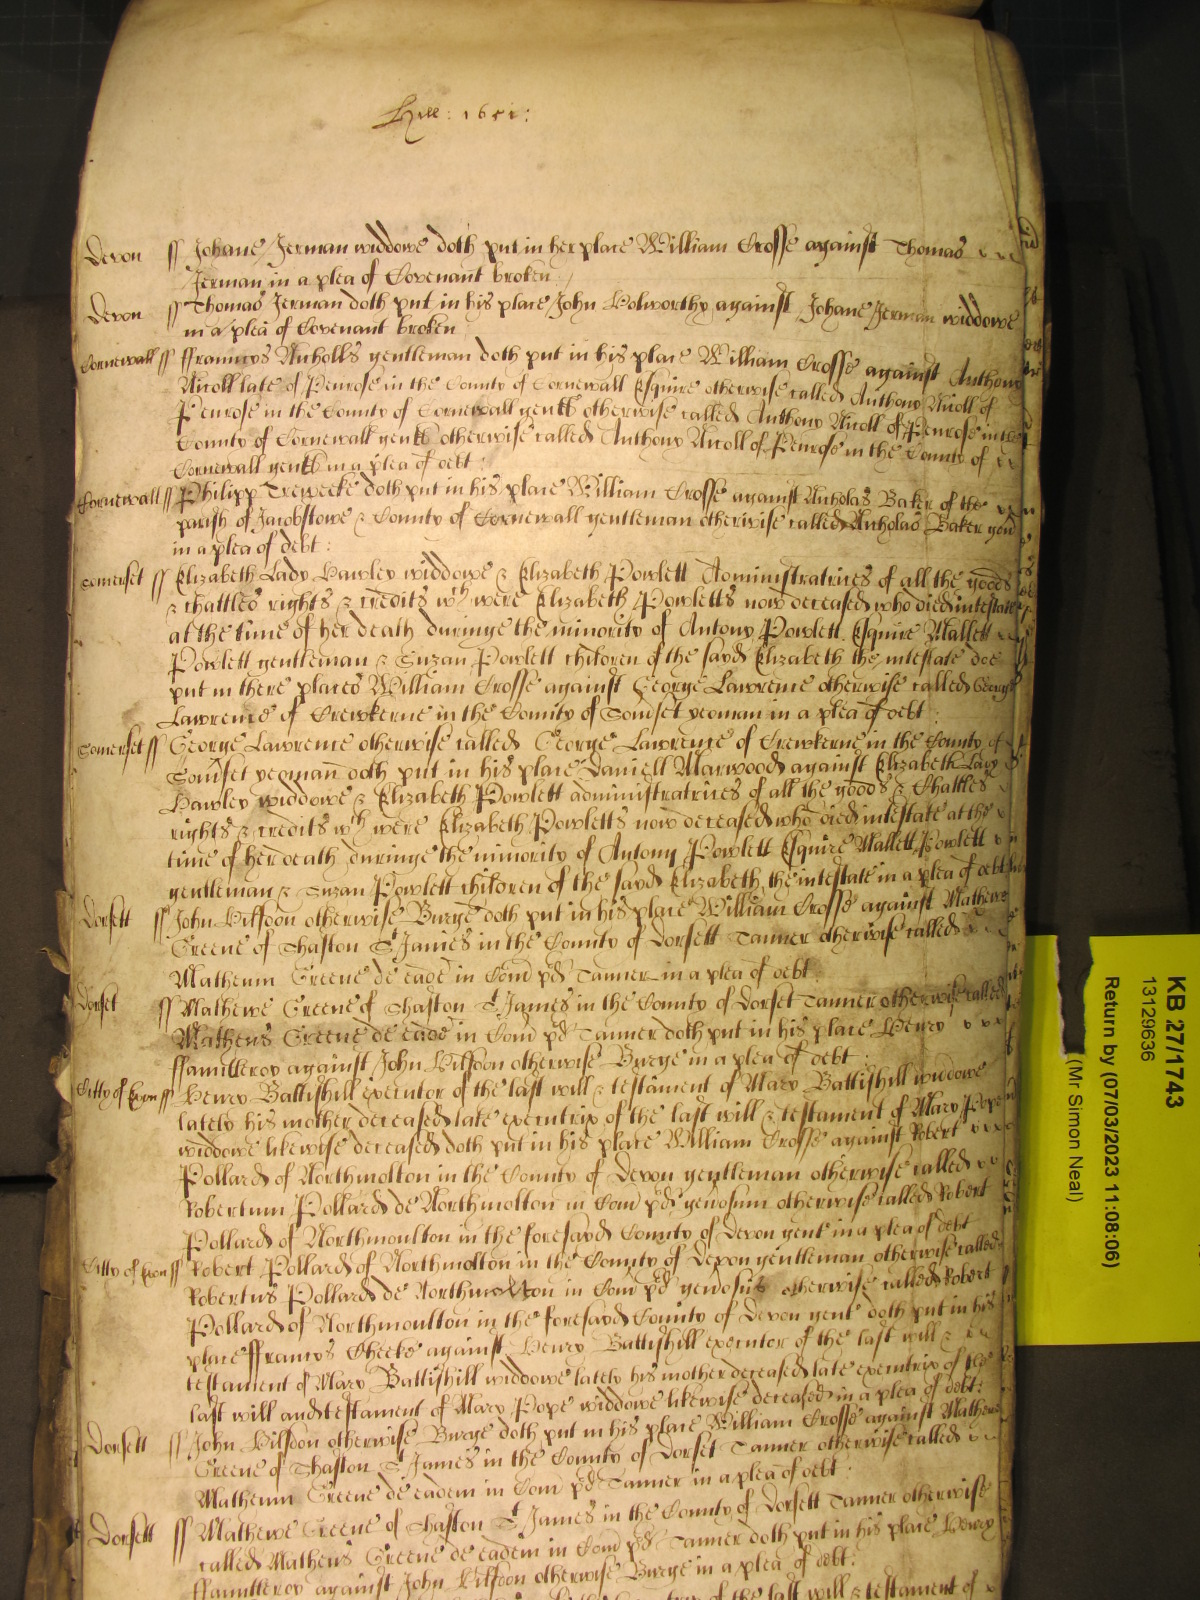 Hill: 1651:
Devon ss Johane Jerman widdowe doth put in her place William Crosse against Thomas
Jerman in a plea of Covenant broken
Devon ss Thomas Jerman doth put in his place John Holworthy against Johane Jerman widdowe
in a plea of Covenant broken
Cornewall ss ffrauncys Nicholls gentleman doth put in his place William Crosse against Anthony
Nicoll late of Penrose in the County of Cornewall Esquire otherwise called Anthony Nicoll of
Penrose in the County of Cornewall gent otherwise called Anthony Nicoll of Penrose in the
County of Cornewall gent otherwise called Anthony Nicoll of Penrose in the County of
Cornewall gent in a plea of debt:
Cornewall ss Philipp Treweeke doth put in his place William Crosse against Nicholas Baker of the
parish of Jacobstowe & County of Cornewall gentleman otherwise called Nicholas Baker gent
in a plea of debt:
Somerset ss Elizabeth Lady Hawley widdowe & Elizabeth Powlett Administratrices of all the goods
& chattles rights & credits wch were Elizabeth Powletts now deceased who died intestate
at the time of her death duringe the minority of Antony Powlett Esquire Mallett
Powlett gentleman & Suzan Powlett children of the sayd Elizabeth the intestate doe
put in there places William Crosse against George Lawrence otherwise called George
Lawrence of Crewkerne in the County of Somset yeoman in a plea of debt:
Somerset ss George Lawrence otherwise called George Lawrence of Crewkerne in the County of
Somset yeoman doth put in his place Daniell Marwood against Elizabeth Lady
Hawley widdowe & Elizabeth Powlett administratrices of all the goods & Chattles
rights & credits wch were Elizabeth Powletts now deceased who died intestate at the
time of her death duringe the minority of Antony Powlett Esquire Mallett Powlett
gentleman & Suzan Powlett children of the sayd Elizabeth the intestate in a plea of debt
Dorsett ss John otherwise Burge doth put in his place William Crosse against Mathewe
Greene of Shaston St James in the County of Dorsett Tanner otherwise called
Matheum Greene de ead in Com pd Tanner in a plea of debt:
Dorset ss Mathewe Greene of Shaston St James in the County of Dorset Tanner otherwise called
Matheus Greene de ead in Com pd Tanner doth put in his place Henry
ffauntleroy against John otherwise Burge in a plea of debt:
Citty of Exon ss Henry Battishill executor of the last will & testament of Mary Battishill widdowe
lately his mother deceased late executrix of the last will & testament of Mary Pope
widdowe likewise deceased doth put in his place William Crosse against Robert
Pollard of Northmolton in the County of Devon gentleman otherwise called
Robertum Pollard de Northmolton in Com pd genosum otherwise called Robert
Pollard of Northmoulton in the foresayd County of Devon gent in a plea of debt
Citty of Exon ss Robert Pollard of Northmolton in the County of Devon gentleman otherwise called
Robertus Pollard de Northmolton in Com pd genosus otherwise called Robert
Pollard of Northmoulton in the foresayd County of Devon gent doth put in his
place ffrancys Cheeke against Henry Battishill executor of the last will &
testament of Mary Battishill widdowe lately his mother deceased late executrix of the
last will and testament of Mary Pope widdowe likewise deceased in a plea of debt:
Dorsett ss John otherwise Burge doth put in his place William Crosse against Mathewe
Greene of Shaston St James in the County of Dorset Tanner otherwise called
Matheum Greene de eadem in Com pd Tanner in a plea of debt:
Dorsett ss Mathewe Greene of Shaston St James in the County of Dorsett Tanner otherwise
called Matheus Greene de eadem in Com pd Tanner doth put in his place Henry
ffauntleroy against John otherwise Burge in a plea of debt:
of the last will & testament of
KB 27/1743
13129636
Return by (07/03/2023 11:08:06)
(Mr Simon Neal)